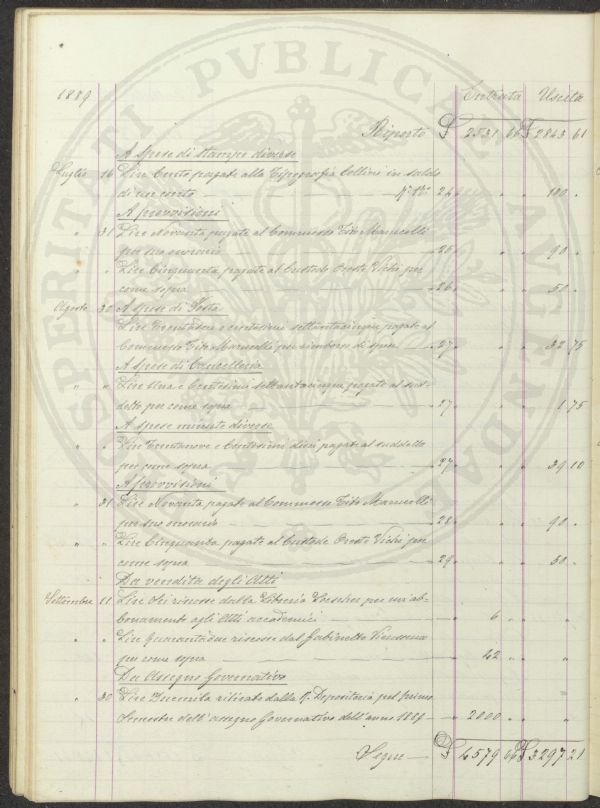 PROSPERITATI PVBLICAE AVGENDAE
1889 Entrata Uscita
Riporto £ 2531 66 £ 2843 61
A spese di stampe diverse
Luglio 16 Lire Cento pagate alla Tipografia Cellini in saldo
di un conto 24 " " 100 "
A provvisioni
" 31 Lire Novanta pagate al Commesso Tito Marucelli
per suo onorario 25 " " 90 "
" " Lire Cinquanta pagate al Custode Oreste Vichi per
come sopra 26 " " 50 "
Agosto 30 A spese di Posta
Lire Trentadue e centesimi settantacinque pagate al
Commesso Tito Marucelli per rimborso di spese 27 " " 32 75
A spese di Cancelleria
" " Lire Una e Centesimi settantacinque pagate al sud-
detto per come sopra 27 " " 1 75
A spese minute diverse
" " Lire Trentanove e Centesimi dieci pagate al suddetto
per come sopra 27 " " 39 10
A provvisioni
" 31 Lire Novanta pagate al Commesso Tito Marucelli
per suo onorario 28 " " 90 "
" " Lire Cinquanta pagate al Custode Oreste Vichi per
come sopra 29 " " 50 "
Da vendita degli Atti
Settembre 11 Lire Sei riscosse dalla Libreria Loescher per un ab-
bonamento agli Atti accademici " 6 " "
" " Lire Quarantadue riscosse dal Gabinetto Vieusseux
per come sopra " 42 " "
Da Assegno Governativo
" 30 Lire Duemila ritirate dalla R. Depositeria pel primo
Semestre dell'assegno Governativo dell'anno 1889 " 2000 " "
Segue £ 4579 66 £ 3297 21